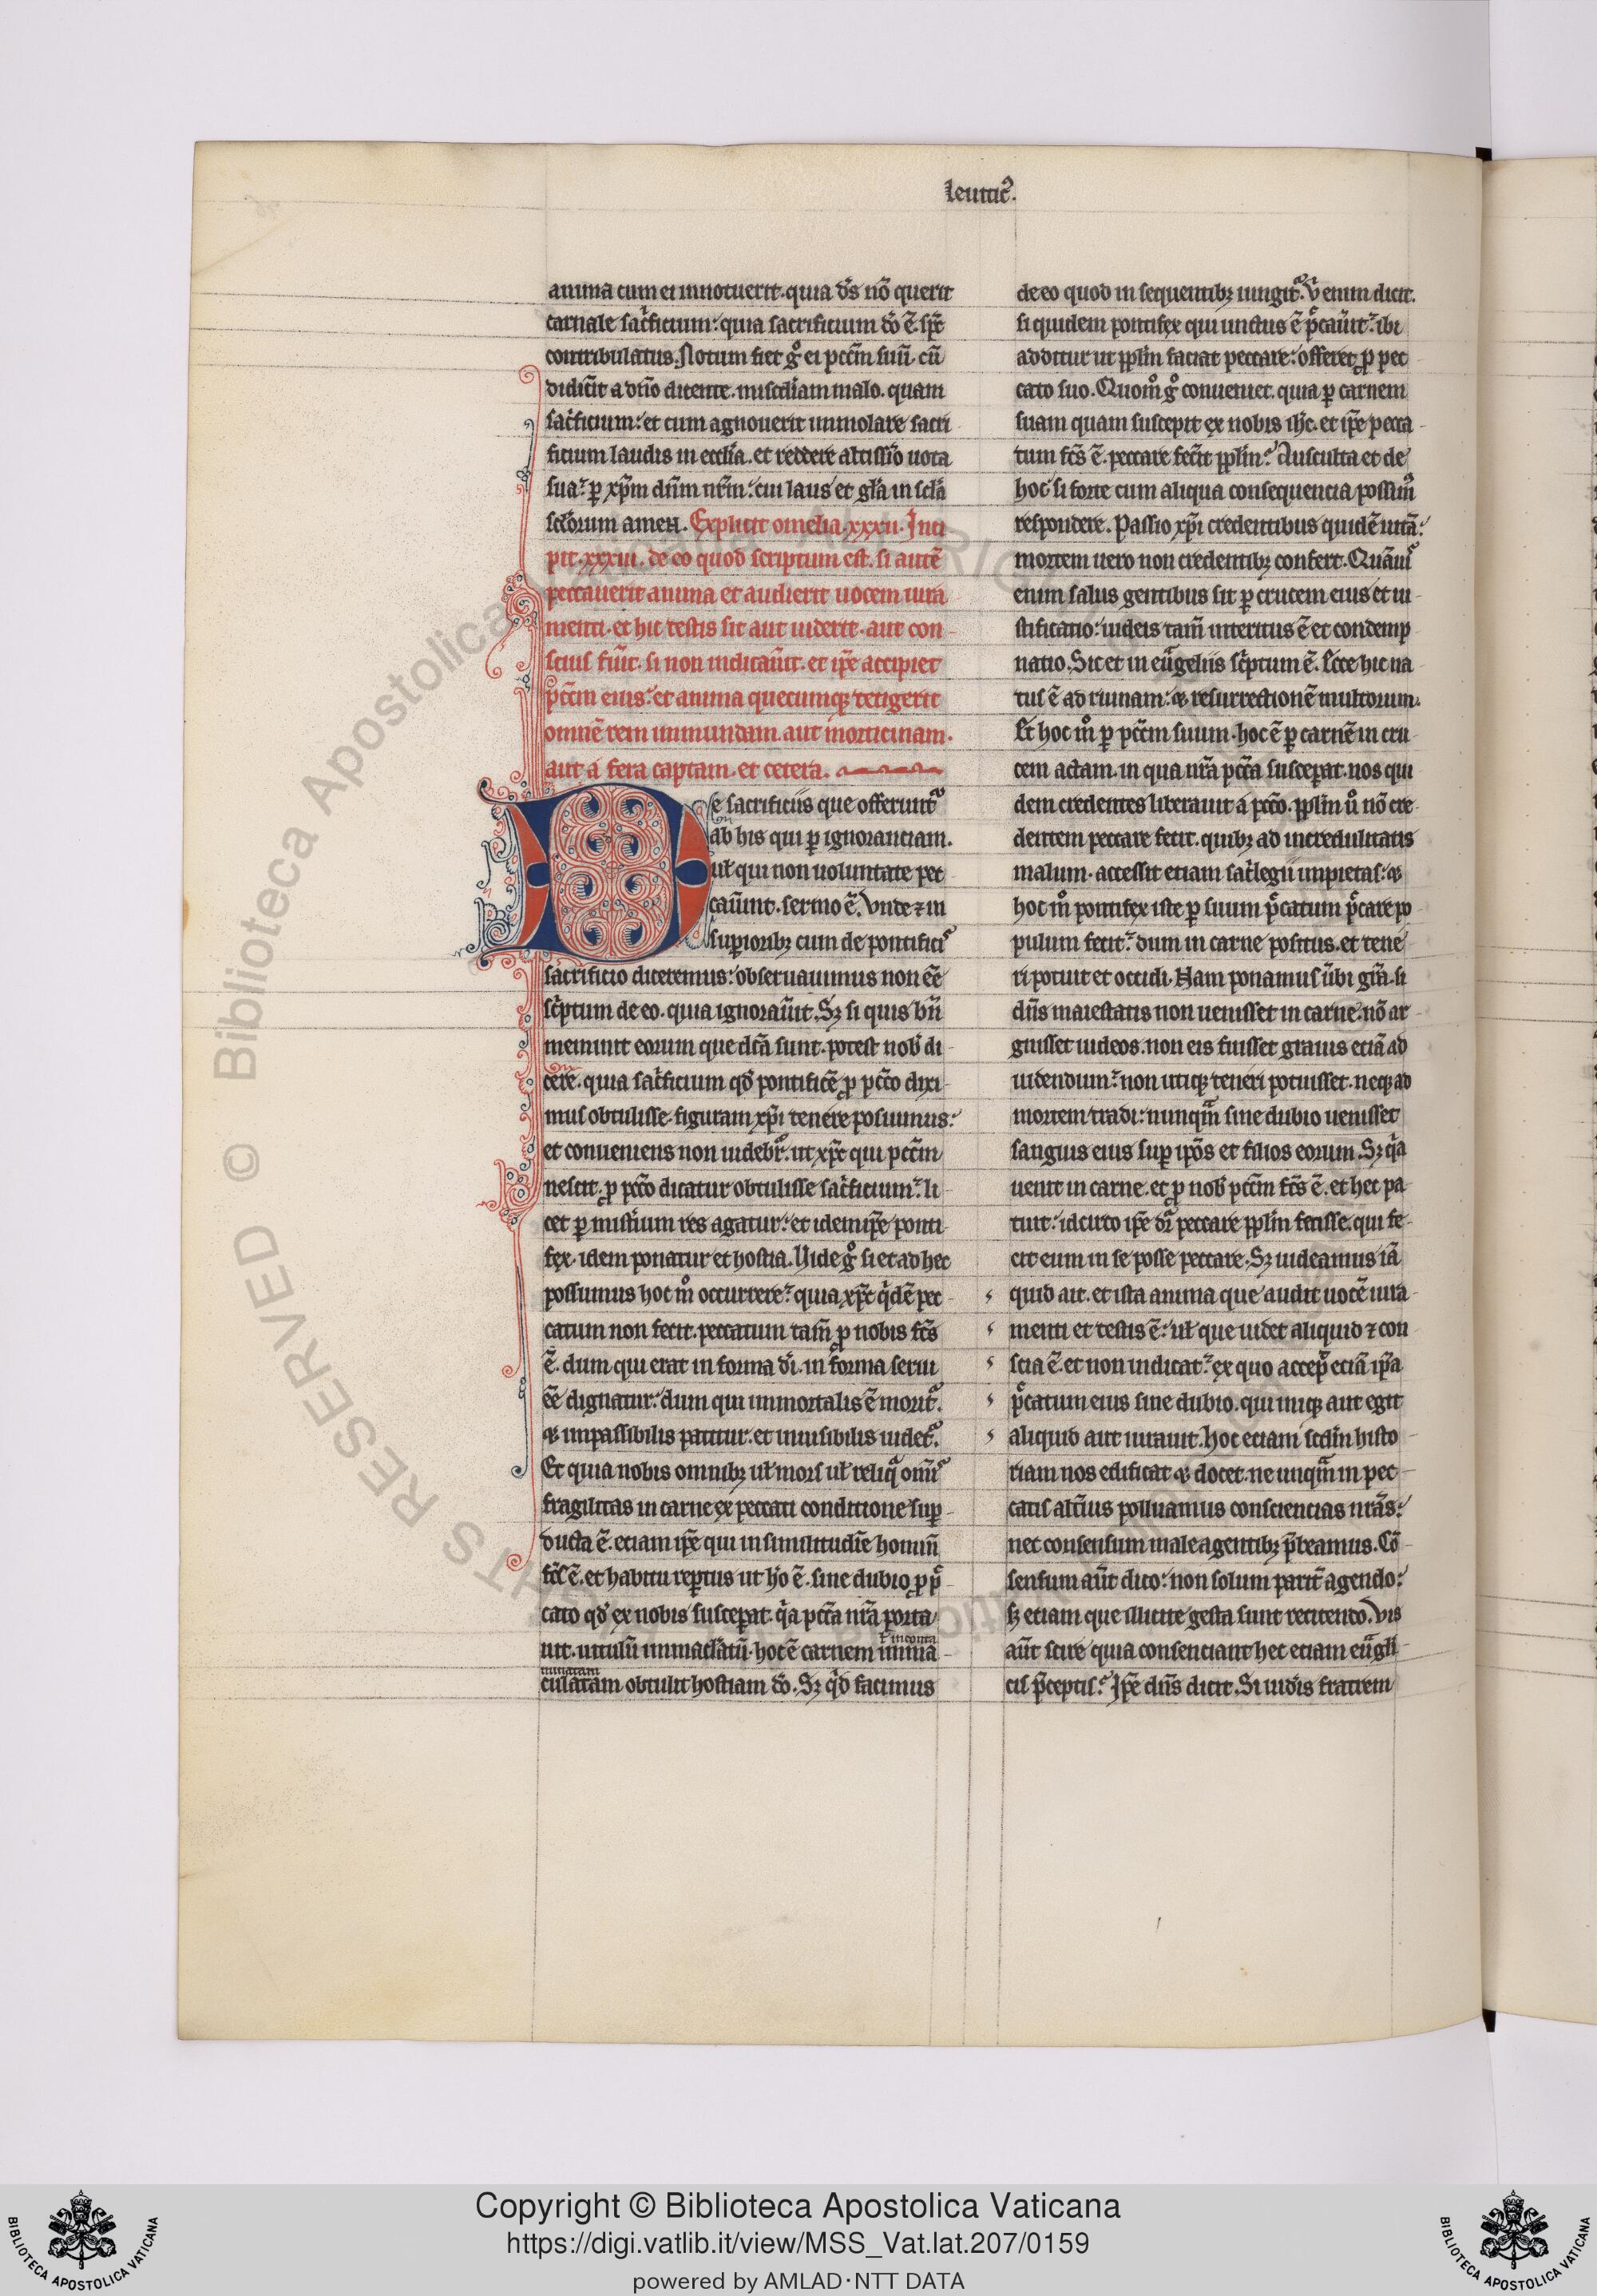 leuitic᷒.
anima cum ei innotuerit. quia ds̄ nō querit
carnale sac̄ficium: quia sacrificium dō ē. sp̄c
contribulatus. Notum fiet gͦ ei pcc̄m suū. cū
didic̄it a dn̄o dicente. misc̄diam malo. quam
sac̄ficium: et cum agnouerit immolare sacri
ficium laudis in ecc̄lia. et reddere altissīo uota
sua: ꝑ xp̄m dn̄m nr̄m: cui laus et gl̄a in sc̄la
sc̄lorum amen. Explicit omelia .xxxii. Inci
pit .xxxiii. de eo quod scriptum est. si autē
peccauerit anima et audierit uocem iura
menti. et hic testis sit aut uiderit. aut con-
scius fūit. si non indicaūit. et ip̄e accipiet
pcc̄m eius: et anima quecumqꝫ tetigerit
omnē rem immundam. aut morticinam.
aut a fera captam. et cetera.
De sacrificiis que offerunt᷑
ab his qui ꝑ ignoranciam.
uł qui non uoluntate pec
caūint. sermo ē. Vnde ⁊ in
suꝑioribꝫ cum de pontifici᷒
sacrificio diceremus: obseruauimus non eē
sc̄ptum de eo. quia ignoraūit. Sꝫ si quis bn̄
meminit eorum que dc̄a sunt. potest nob᷒ di-
cere. quia sac̄ficium qd̄ pontificē ꝓ pcc̄o dixi-
mus obtulisse. figuram xp̄i tenere posuimus:
et conueniens non uidebr᷑. ut xp̄c qui pcc̄m
nescit. ꝓ pcc̄o dicatur obtulisse sac̄ficium: li-
cet ꝑ mist̄ium res agatur: et idem ip̄e ponti-
fex. idem ponatur et hostia. Vide gͦ si et ad hec
possumus hoc mͦ occurrere: quia xp̄c qͥdē pec-
catum non fecit. peccatum tam̄ ꝓ nobis fc̄s
ē. dum qui erat in forma dī. in forma serui
eē dignatur: dum qui immortalis ē morit᷑.
⁊ impassibilis patitur. et inuisibilis uidet᷑.
Et quia nobis omnibꝫ uł mors uł reliqͣ omīs
fragilitas in carne ex peccati conditione suꝑ
ducta ē. etiam ip̄e qui in similitudīe homīn
fc̄s ē. et habitu reꝑtus ut hͦo ē. sine dubio ꝓ p̄-
cato qd̄ ex nobis susceꝑat. qͥa pcc̄a nr̄a porta-
uit. uitulū immac̄latū. hoc ē carnem imma-
culatam obtulit hostiam dō. Sꝫ qͥd facimus
ł inconta
minatam
de eo quod in sequentibꝫ iungit᷑. Vͥ enim dicit.
si quidem pontifex qui unctus ē p̄caūit: ibi
additur ut pp̄lm faciat peccare: offeret ꝓ pec
cato suo. Quomͦ gͦ conueniet. quia ꝑ carnem
suam quam suscepit ex nobis ih̄c. et ip̄e pecca-
tum fc̄s ē. peccare fec̄it pp̄lm? Ausculta et de
hoc si forte cum aliqua consequencia possum᷒
respondere. Passio xp̄i credentibus quidē uitā:
mortem uero non credentibꝫ confert. Quāuis
enim salus gentibus sit ꝑ crucem eius et iu-
stificatio: iudeis tam̄ interitus ē et condemp
natio. Sic et in euͣgeliis sc̄ptum ē. Ecce hic na
tus ē ad ruinam: ⁊ resurrectionē multorum.
Et hoc mͦ ꝑ pcc̄m suum. hoc ē ꝑ carnē in cru-
cem actam. in qua nr̄a pcc̄a susceꝑat. nos qui
dem credentes liberauit a pcc̄o. pp̄lm uͦ nō cre-
dentem peccare fecit. quibꝫ ad incredulitatis
malum. accessit etiam sac̄legii impietas: ⁊
hoc mͦ pontifex iste ꝑ suum p̄catum p̄care po
pulum fecit: dum in carne positus. et tene
ri potuit et occidi. Nam ponamus ūbi gr̄a. si
dn̄s maiestatis non uenisset in carne. nō ar-
guisset iudeos. non eis fuisset grauis eciā ad
uidendum: non utiqꝫ teneri potuisset. neqꝫ ad
mortem tradi: nunqͣm sine dubio uenisset
sanguis eius suꝑ ip̄os et filios eorum. Sꝫ qͥa
uenit in carne. et ꝓ nob᷒ pcc̄m fc̄s ē. et hec pa
tit᷑: idcirco ip̄e dr̄ peccare pp̄lm fecisse. qui fe-
cit eum in se posse peccare. Sꝫ uideamus iā
quid ait. et ista anima que audit uocē iura-
menti et testis ē: uł que uidet aliquid ⁊ con
scia ē. et non indicat: ex quo accep̄ eciā ip̄a
p̄catum eius sine dubio. qui iniqꝫ aut egit
aliquid aut iurauit. Hoc etiam sc̄dm histo-
riam nos edificat ⁊ docet. ne unqͣm in pec-
catis alt̄ius polluamus consciencias nr̄as:
nec consensum male agentibꝫ p̄beamus. Cō-
sensum aūt dico: non solum parit̄ agendo:
sꝫ etiam que illicite gesta sunt reticendo. Vis
aūt scire quia consenciant hec etiam euͣgli-
cis p̄ceptis? Ip̄e dn̄s dicit. Si uid̄is fratrem
© Biblioteca Apostolica Vaticana ALL RIGHTS RESERVED
Copyright © Biblioteca Apostolica Vaticana
https://digi.vatlib.it/view/MSS_Vat.lat.207/0159
powered by AMLAD·NTT DATA
BIBLIOTECA APOSTOLICA VATICANA
BIBLIOTECA APOSTOLICA VATICANA